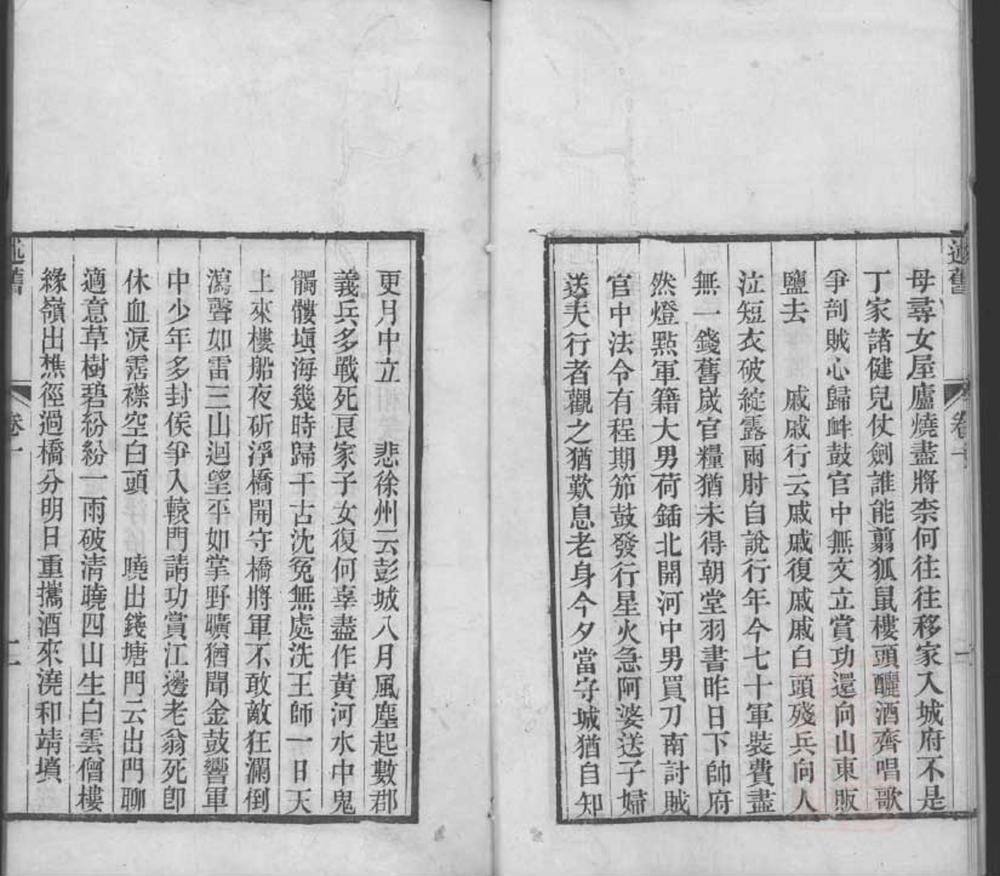 述舊
卷一
一
母尋女屋廬燒盡將柰何往往移家入城府不是
丁家諸健兒仗劍誰能翦狐鼠樓頭釃酒齊唱歌
爭剖賊心歸衅鼓官中無文立賞功還向山東販
鹽去　戚戚行云戚戚復戚戚白頭殘兵向人
泣短衣破綻露兩肘自說行年今七十軍裝費盡
無一錢舊歲官糧猶未得朝堂羽書昨日下帥府
然燈點軍籍大男荷鍤北開河中男買刀南討賊
官中法令有程期笳鼓發行星火急阿婆送子婦
送夫行者觀之猶歎息老身今夕當守城猶自知
更月中立　悲徐州云彭城八月風塵起數郡
義兵多戰死良家子女復何辜盡作黃河水中鬼
髑髏塡海幾時歸千古沈冤無處洗王師一日天
上來樓船夜斫淨橋開守橋將軍不敢敵狂瀾倒
瀉聲如雷三山迴望平如掌野曠猶聞金鼓響軍
中少年多封侯爭入轅門請功賞江邊老翁死卽
休血淚霑襟空白頭　曉出錢塘門云出門聊
適意草樹碧紛紛一雨破淸曉四山生白雲僧樓
緣嶺出樵徑過橋分明日重攜酒來澆和靖墳
述舊
卷一
二